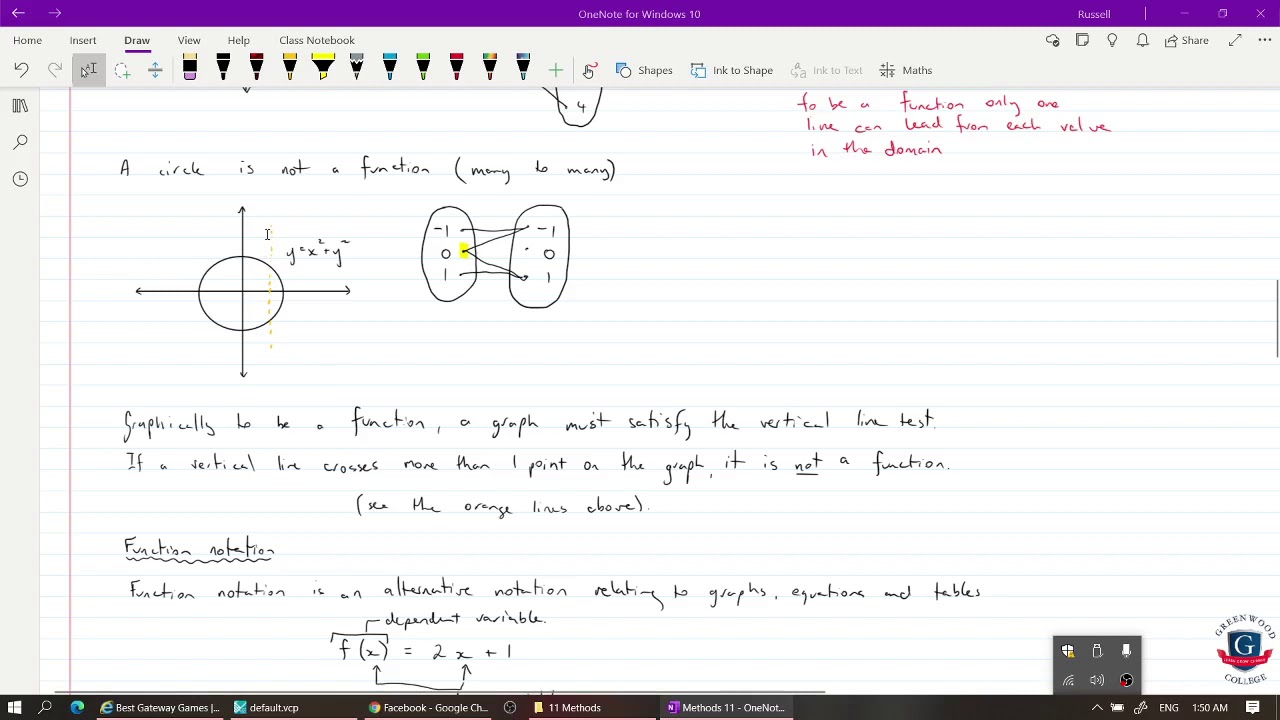 OneNote for Windows 10
Russell
Home Insert Draw View Help Class Notebook
Share
Shapes Ink to Shape Ink to Text Maths
4
to be a function only one
line can lead from each value
in the domain
A circle is not a function (many to many)
y=x²+y²
-1 -1
0 0
1 1
Graphically to be a function, a graph must satisfy the vertical line test.
If a vertical line crosses more than 1 point on the graph, it is not a function.
(see the orange lines above).
Function notation
Function notation is an alternative notation relating to graphs, equations and tables
dependent variable.
f(x) = 2x + 1
GREENWOOD
G
COLLEGE
Best Gateway Games | ...
default.vcp
Facebook - Google Ch...
11 Methods
Methods 11 - OneNot...
ENG 1:50 AM